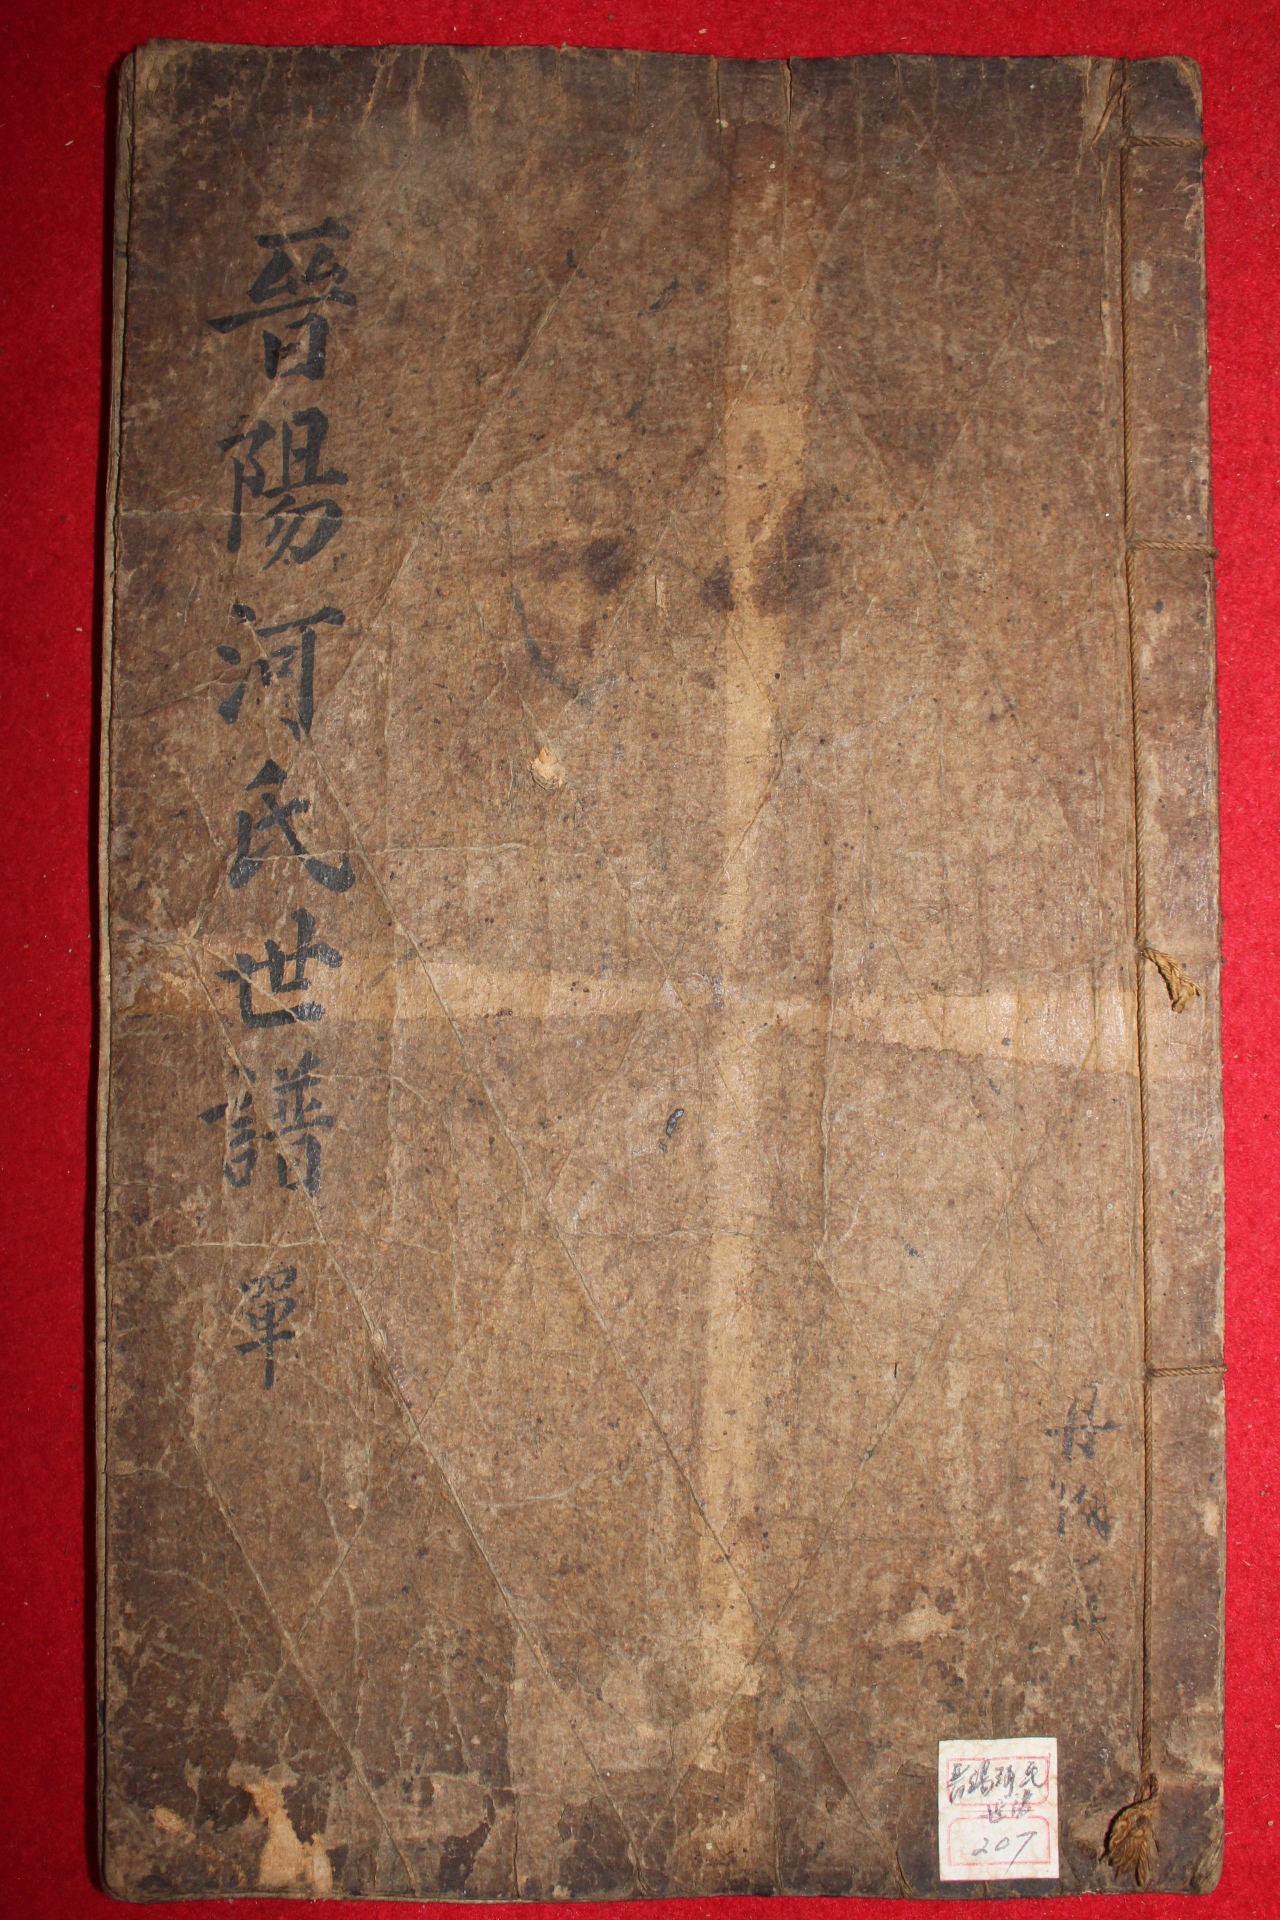 晉陽河氏世譜 單
晉陽河氏
世譜
207